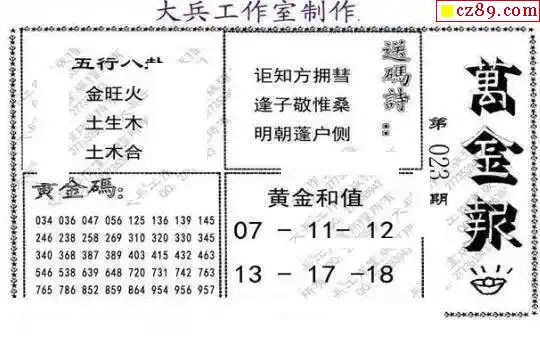 大兵工作室制作
cz89.com
五行八卦
金旺火
土生木
土木合
送碼詩：
讵知方拥彗
逢子敬惟桑
明朝蓬户侧
萬金報
第023期
黄金碼：
034 036 047 056 125 136 139 145
246 238 258 269 310 320 330 345
340 368 387 389 403 415 432 463
546 538 639 648 720 731 742 763
765 786 852 859 864 954 956 957
黄金和值
07 - 11- 12
13 - 17 -18